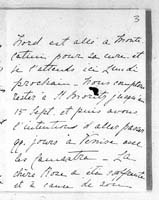 3
Nord est allé à Monte
Catini pour sa cure, et
je l'attends ici Lundi
prochain — Nous comptons
rester à St Moritz jusqu'au
15 Sept. et puis avons
l'intention d'aller passer
qq. jours à Venise avec
les — La
chère Rose a été souffrante
et à cause de son